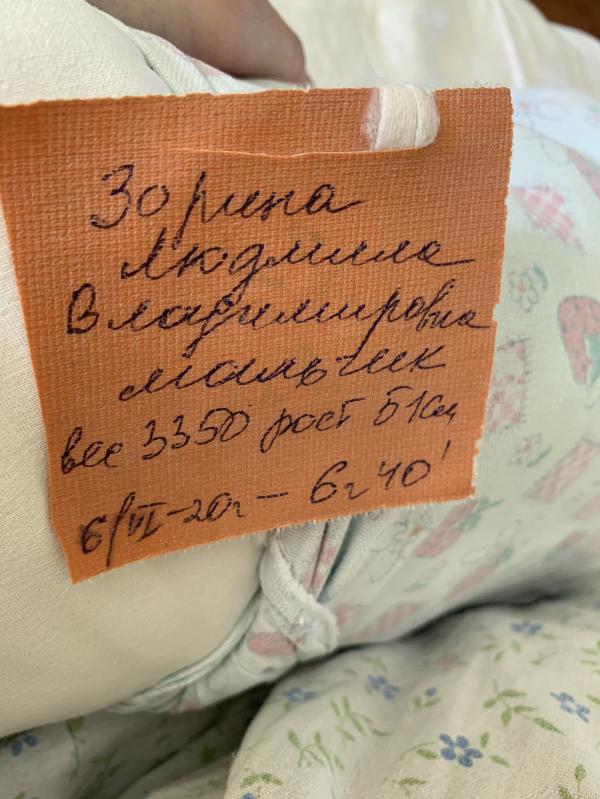 Зорина
Людмила
Владимировна
мальчик
вес 3350 рост 51см
6/VI-20г - 6ч 40'